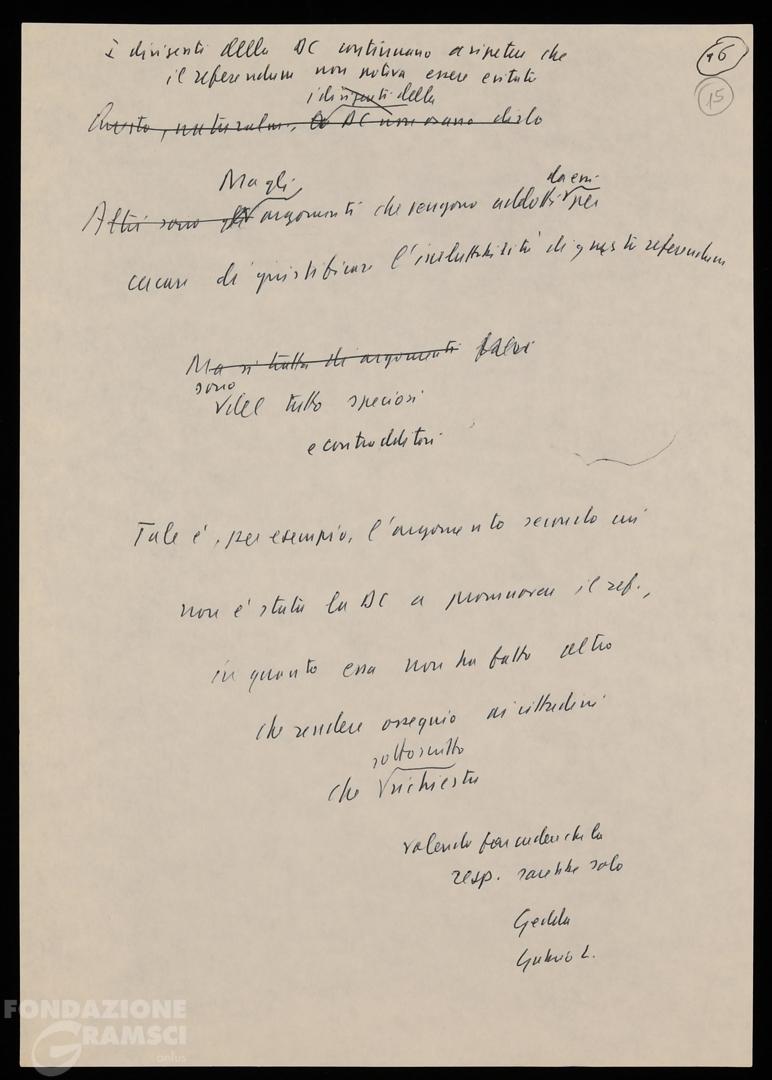 16
15
I dirigenti della DC continuano a ripetere che
il referendum non poteva essere evitato
i dirigenti della
Questo, naturalm., la DC non osano dirlo
Ma gli da essi
Altri sono gli argomenti che vengono addotti per
cercare di giustificare l'ineluttabilità di questo referendum
Ma si tratta di argomenti falsi
sono
del tutto speciosi
e contraddittori
Tale è, per esempio, l'argomento secondo cui
non è stata la DC a promuovere il ref.,
in quanto essa non ha fatto altro
che rendere ossequio ai cittadini
sottoscritto
che richiesta
volendo far credere che la
resp. sarebbe solo
Gedda
Gabrio L.
FONDAZIONE
GRAMSCI
onlus